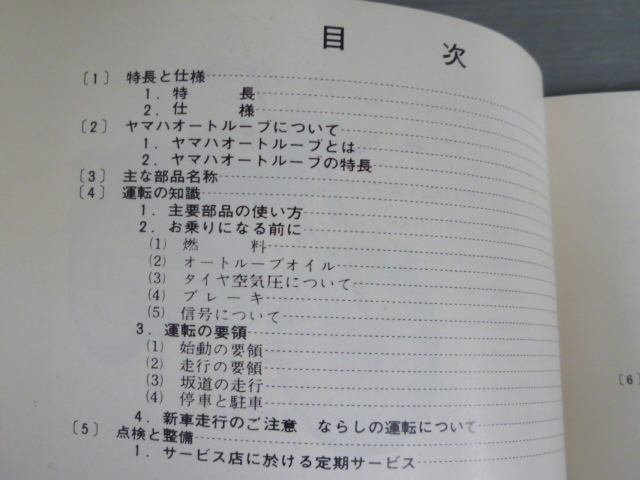 目　次
〔1〕 特長と仕様
1. 特　長
2. 仕　様
〔2〕 ヤマハオートルーブについて
1. ヤマハオートルーブとは
2. ヤマハオートルーブの特長
〔3〕 主な部品名称
〔4〕 運転の知識
1. 主要部品の使い方
2. お乗りになる前に
(1) 燃　料
(2) オートルーブオイル
(3) タイヤ空気圧について
(4) ブレーキ
(5) 信号について
3. 運転の要領
(1) 始動の要領
(2) 走行の要領
(3) 坂道の走行
(4) 停車と駐車
4. 新車走行のご注意　ならしの運転について
〔5〕 点検と整備
1. サービス店に於ける定期サービス
〔6〕